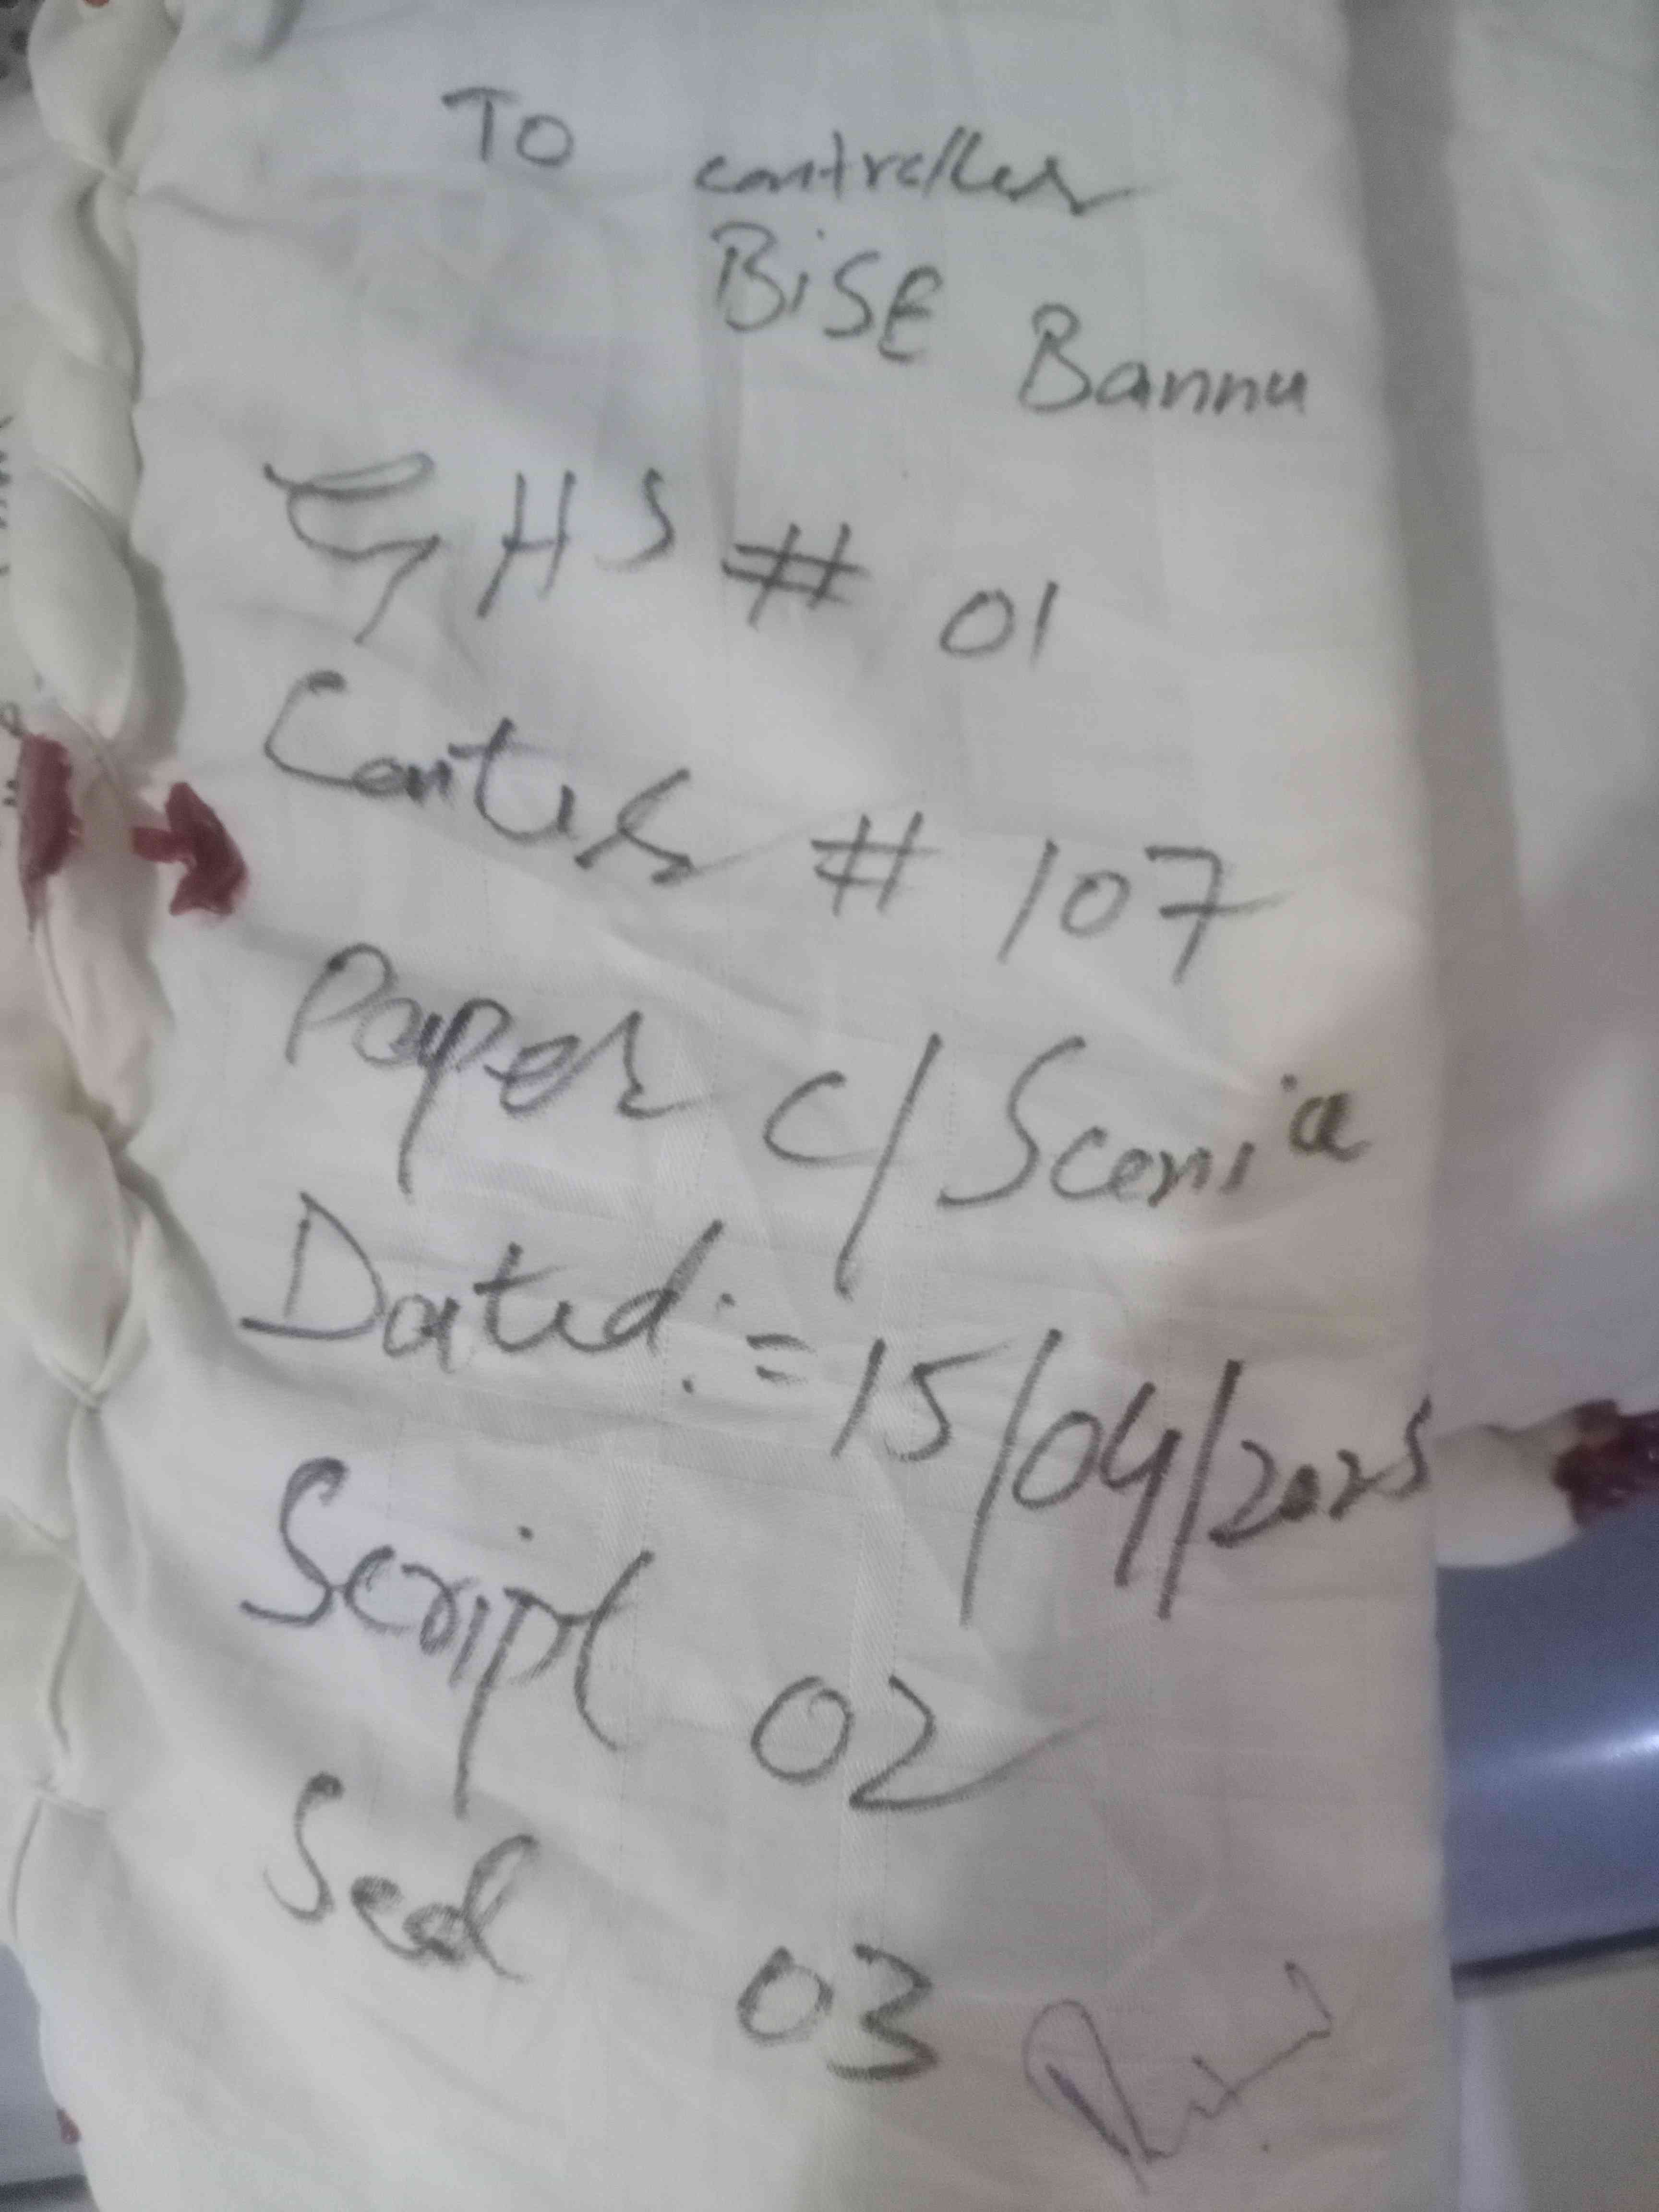 To controller
BiSE Bannu
GHS # 01
Center # 107
Paper C/Scenia
Dated:=15/04/2025
Script 02
Seal 03